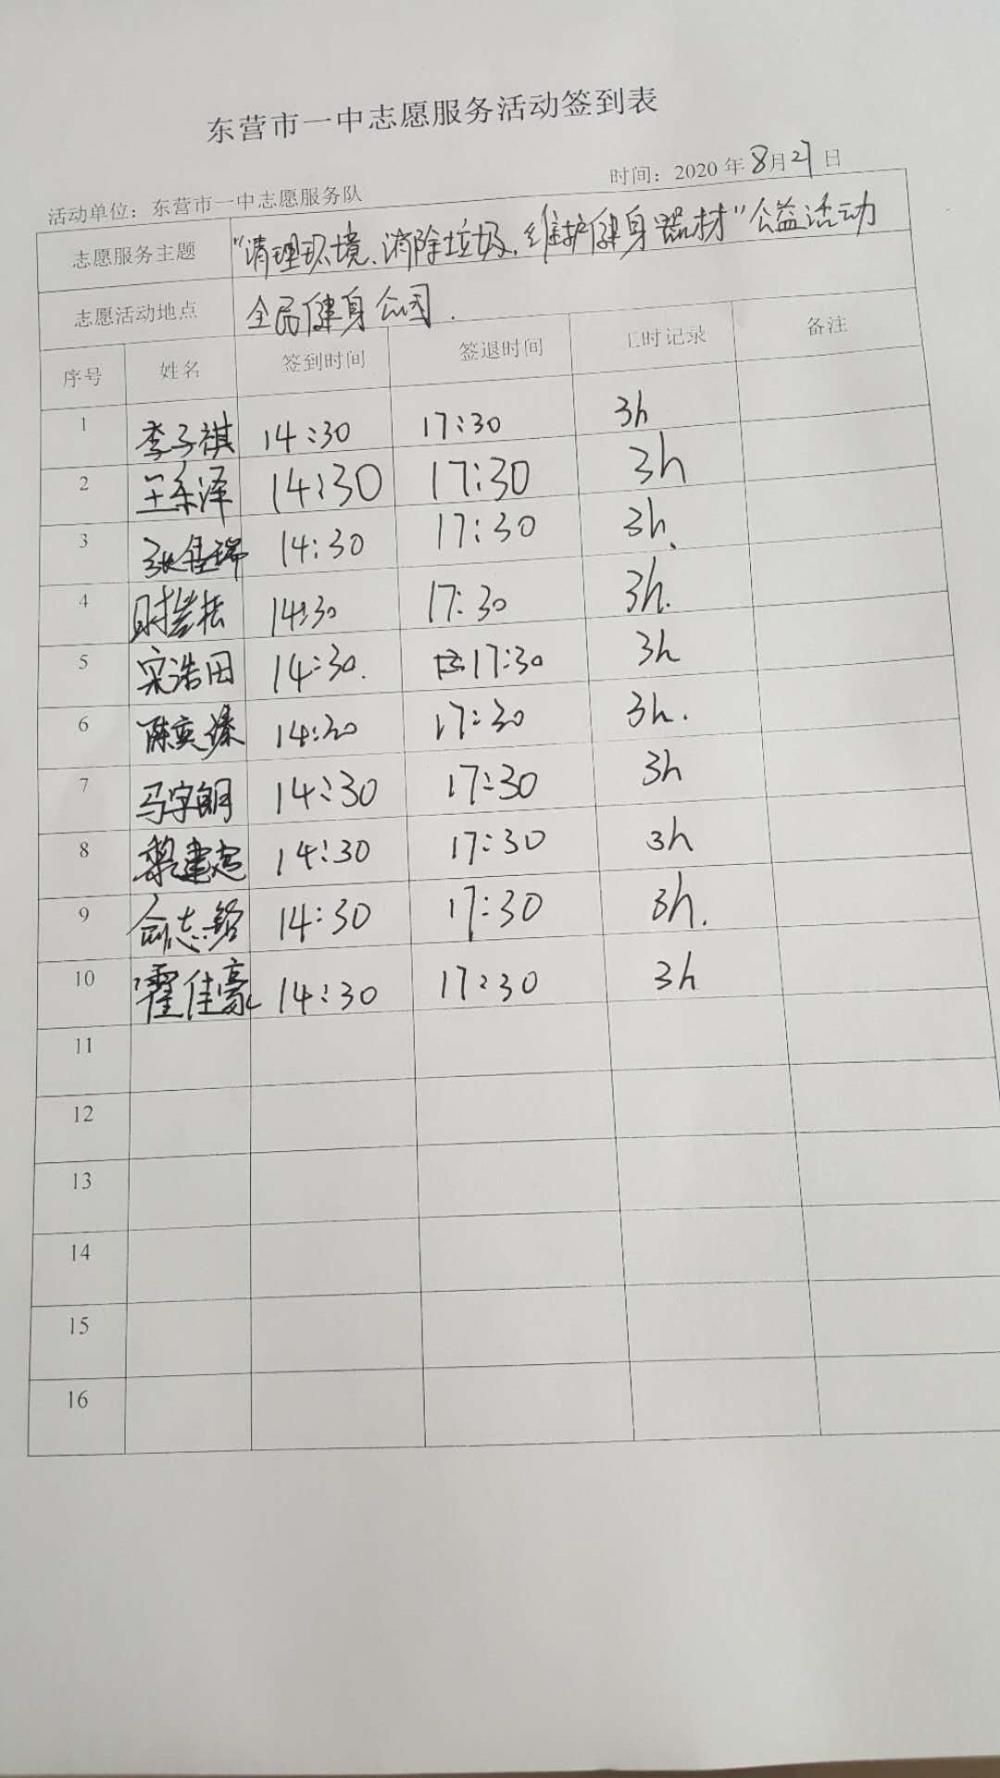 东营市一中志愿服务活动签到表
活动单位：东营市一中志愿服务队 时间：2020年8月21日
志愿服务主题 “清理环境、消除垃圾、维护健身器材”公益活动
志愿活动地点 全民健身公园.
序号 姓名 签到时间 签退时间 工时记录 备注
1 李子祺 14:30 17:30 3h
2 王泽 14:30 17:30 3h
3 张瑞 14:30 17:30 3h.
4 14:30 17:30 3h.
5 宋浩田 14:30. 17:30 3h
6 陈奕 14:30 17:30 3h.
7 马宇朗 14:30 17:30 3h
8 建 14:30 17:30 3h
9 俞志铭 14:30 17:30 3h.
10 霍佳豪 14:30 17:30 3h
11
12
13
14
15
16